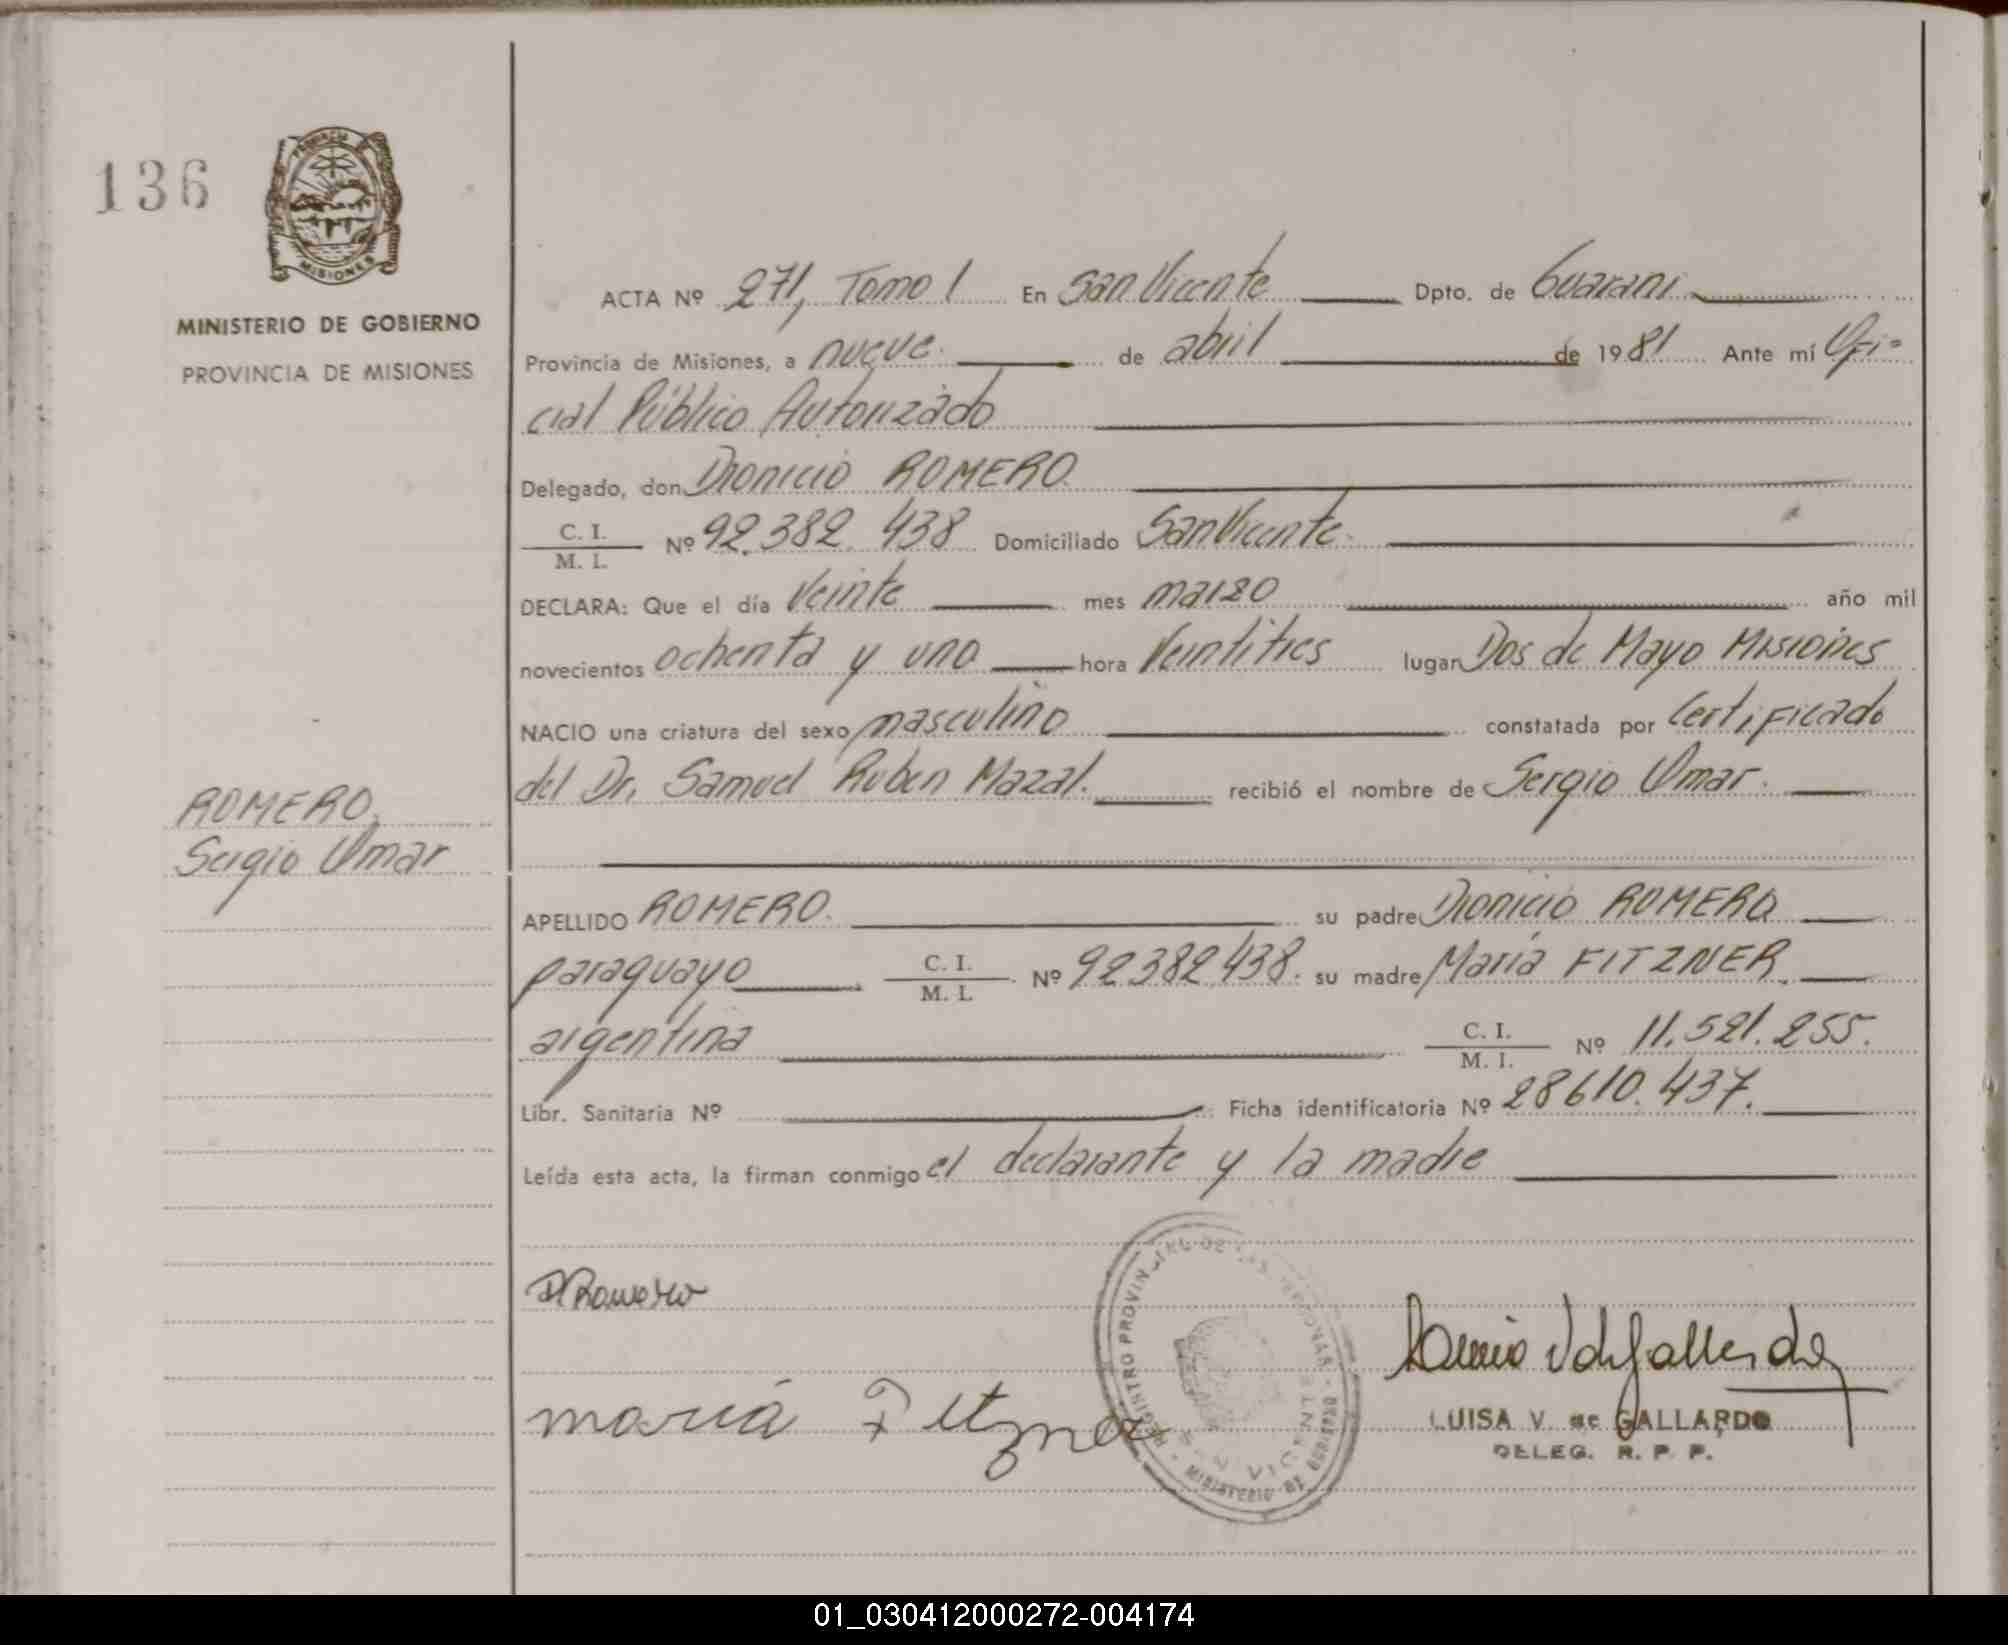 136
PROVINCIA DE
MISIONES
MINISTERIO DE GOBIERNO
PROVINCIA DE MISIONES
ROMERO,
Sergio Omar
ACTA Nº 271, Tomo I En San Vicente Dpto. de Guarani
Provincia de Misiones, a nueve. de abril de 1981 Ante mí Ofi=
cial Público Autorizado
Delegado, don Dionicio ROMERO.
C. I.
M. I. Nº 92.382.438 Domiciliado San Vicente.
DECLARA: Que el día veinte mes marzo año mil
novecientos ochenta y uno hora veintitres lugar Dos de Mayo Misiones
NACIO una criatura del sexo masculino constatada por Certificado
del Dr. Samuel Ruben Mazal. recibió el nombre de Sergio Omar.
APELLIDO ROMERO. su padre Dionicio ROMERO
paraguayo C. I.
M. I. Nº 92382438. su madre María FITZNER
argentina C. I.
M. I. Nº 11.521.255.
Libr. Sanitaria Nº Ficha identificatoria Nº 28610.437.
Leída esta acta, la firman conmigo el declarante y la madre
D Romero
maria Fitzner
REGISTRO PROVINCIAL DE LAS PERSONAS - MINISTERIO DE GOBIERNO
SAN VICENTE
LUISA V. de GALLARDO
DELEG. R. P. P.
01_030412000272-004174